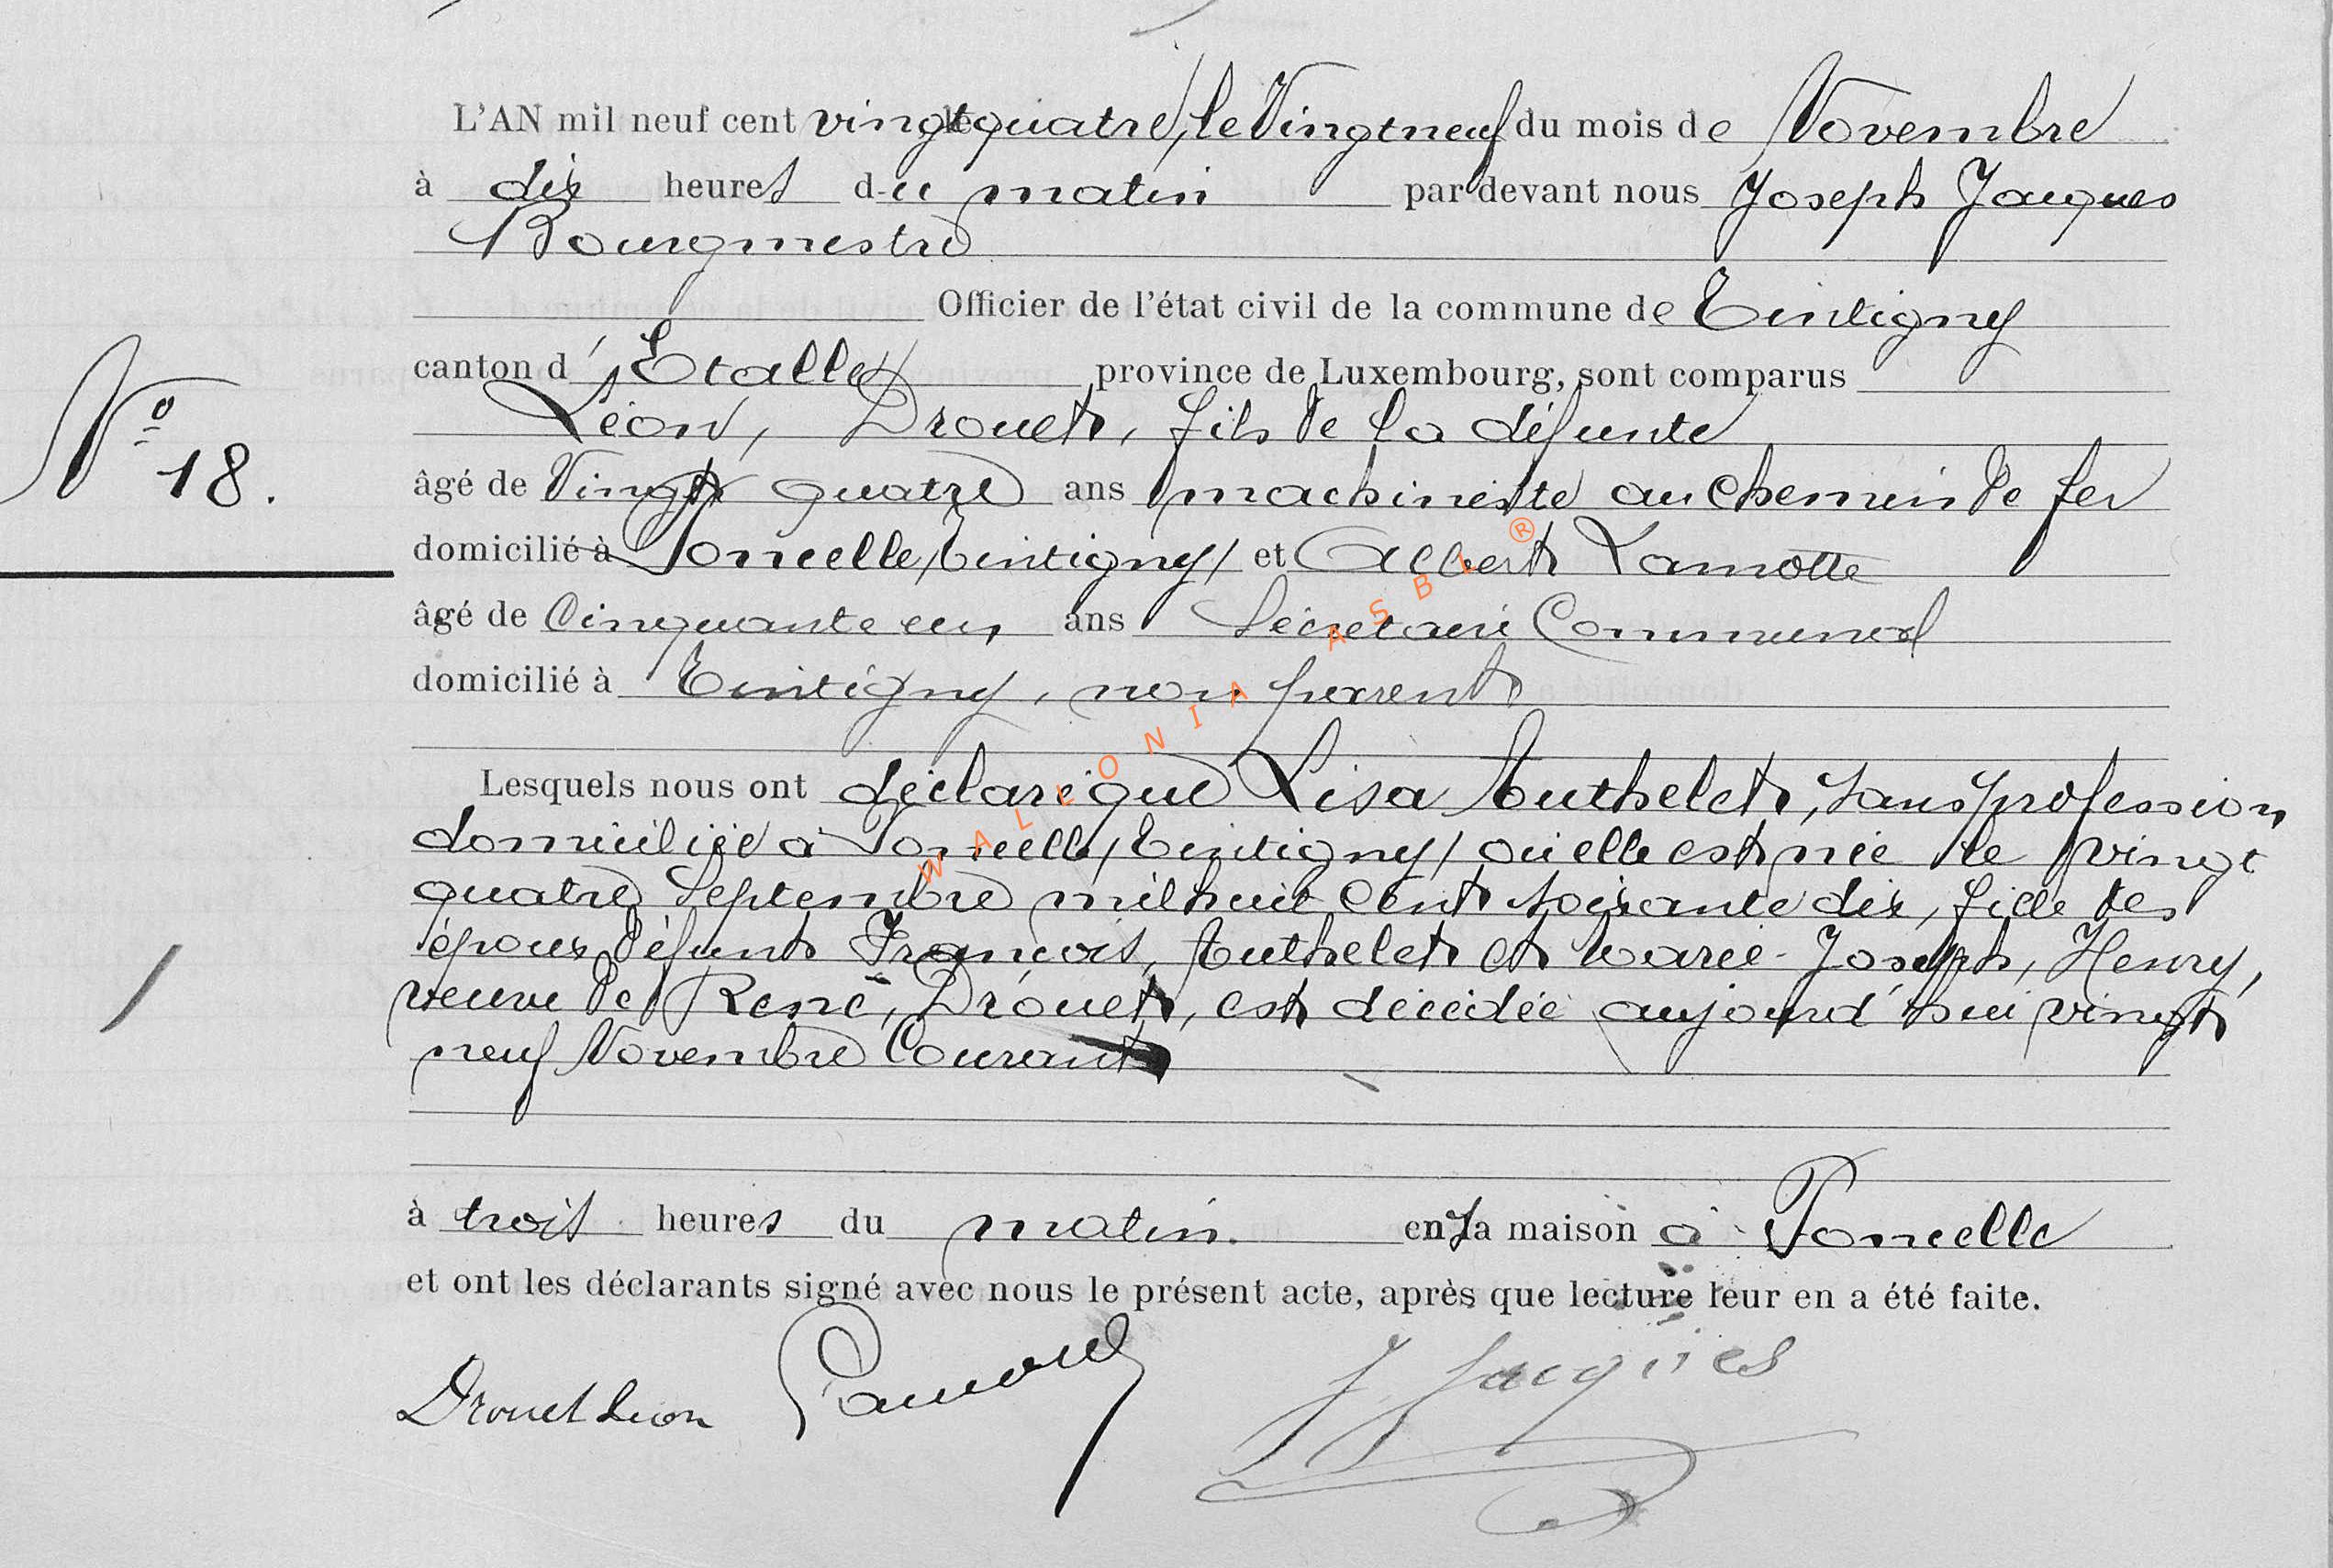 L'AN mil neuf cent vingt quatre, le Vingt neuf du mois de Novembre
à dix heures du matin par devant nous Joseph Jacques
Bourgmestre
Officier de l'état civil de la commune de Tintigny
canton d'Etalle, province de Luxembourg, sont comparus
Léon, Drouet, fils de la défunte
N° 18.
âgé de Vingt quatre ans machiniste au chemin de fer
domicilié à Poncelle, Tintigny, et Albert Lamotte
âgé de Cinquante un ans Secrétaire Communal
domicilié à Tintigny, non parent
Lesquels nous ont déclaré que Lisa Tuthelet, sans profession
domiciliée à Poncelle, Tintigny, où elle est née le vingt
quatre Septembre mil huit cent soixante dix, fille des
époux défunts François, Tuthelet et Marie-Joseph, Henry,
veuve de René, Drouet, est décédée aujourd'hui vingt
neuf Novembre Courant
à trois heures du matin en sa maison à Poncelle
et ont les déclarants signé avec nous le présent acte, après que lecture leur en a été faite.
Drouet Léon Lamotte J Jacques
WALLONIA ASBL ®